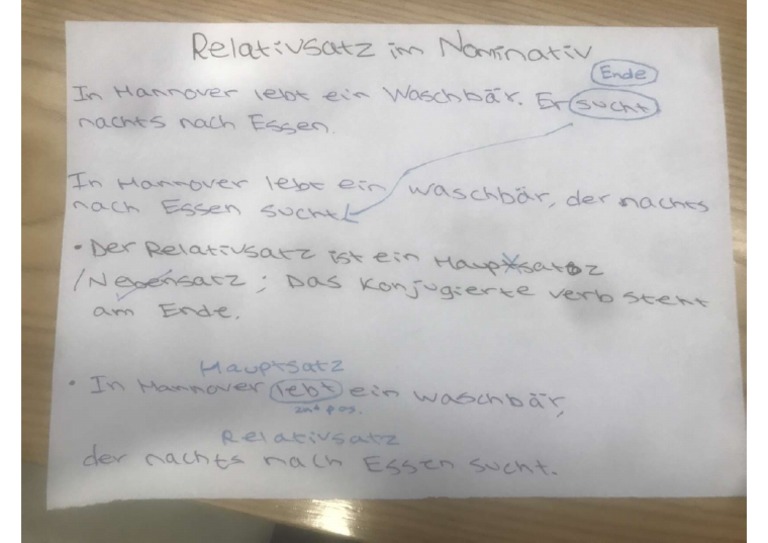 Relativsatz im Nominativ
Ende
In Hannover lebt ein Waschbär. Er sucht
nachts nach Essen.
In Hannover lebt ein waschbär, der nachts
nach Essen sucht.
• Der Relativsatz ist ein Hauptsatz
/Nebensatz; Das Konjugierte verb steht
am Ende.
Hauptsatz
• In Hannover lebt ein waschbär,
2nd pos.
Relativsatz
der nachts nach Essen sucht.